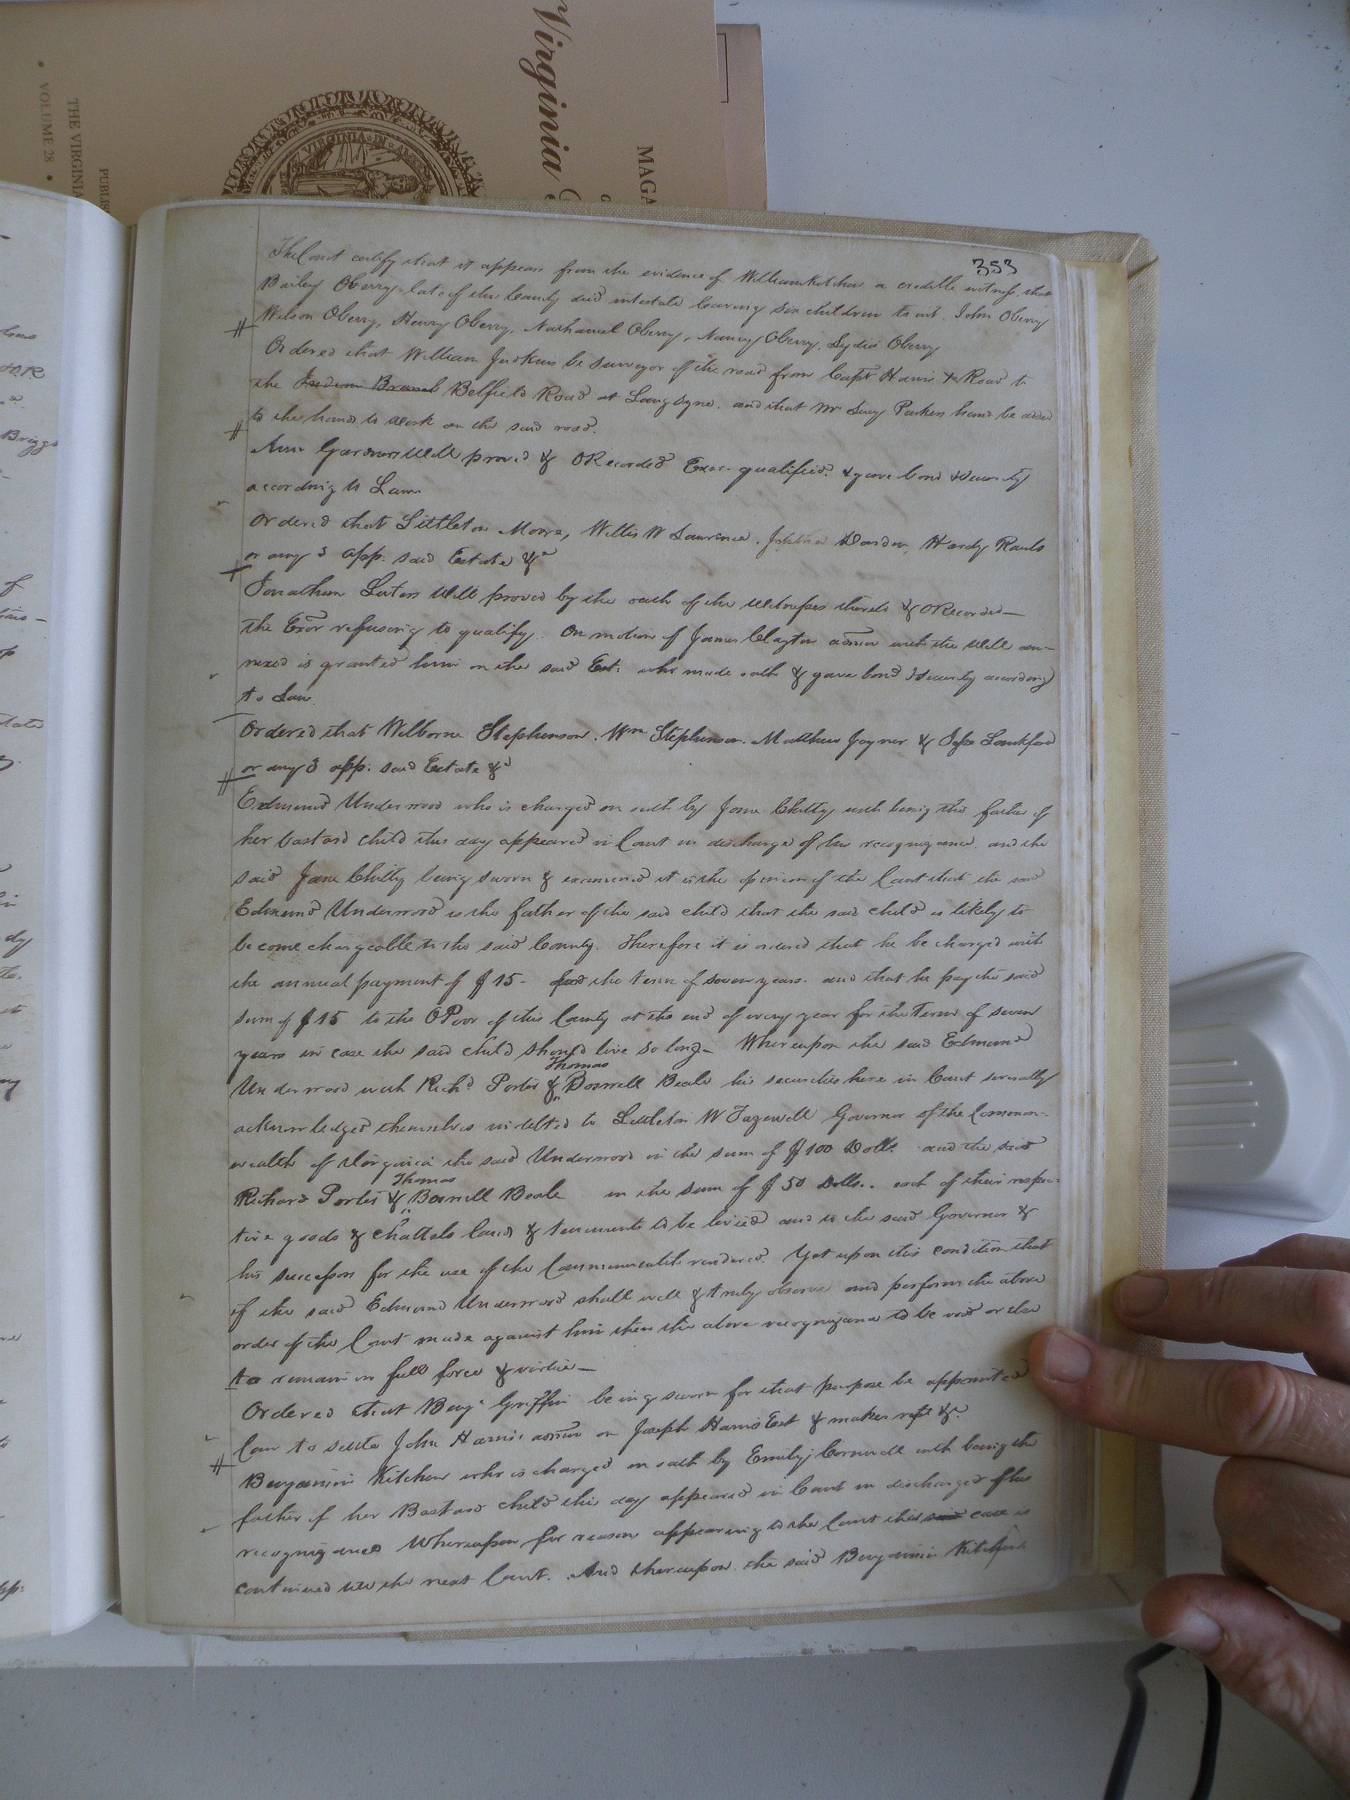 Virginia
MAGA
THE VIRGINIA
VOLUME 28
PUBLIS
VIRGINIA
353
The Court certify that it appears from the evidence of William Kitchen a credible witness, that
Bailey Oberry late of this County died intestate leaving six children to wit. John Oberry
Wilson Oberry, Henry Oberry, Nathaniel Oberry, Nancy Oberry, Lydia Oberry
Ordered that William Judkins be surveyor of the road from Capt Harris Road to
the Belfield Road at and that Mr Parkers hands be added
to the hands to work on the said road.
Ann Gardners Will proved & ORecorded Exor qualified & gave bond & security
according to Law
Ordered that Littleton Moore, Willis W Lawrence, Darden, Hardy Rawls
or any 3 app. said Estate &c
Jonathan Lesters Will proved by the oath of the witnesses thereto & ORecorded
the Exor refusing to qualify. On motion of James Clayton admn with the Will an-
nexed is granted him on the said Est. who made oath & gave bond & security according
to Law
Ordered that Wilborne Stephenson, Wm Stephenson, Matthew Joyner & Jesse Lankford
or any 3 app. said Estate &c
Edmund Underwood who is charged on oath by Jane Chitty with being the father of
her bastard child this day appeared in Court in discharge of his recognizance and the
said Jane Chitty being sworn & examined it is the opinion of the Court that the said
Edmund Underwood is the father of the said child that the said child is likely to
become chargeable to the said County. Therefore it is ordered that he be charged with
the annual payment of $15 - for the term of seven years. and that he pay the said
sum of $15 to the OPoor of this County at the end of every year for the term of seven
years in case the said child should live so long - Whereupon the said Edmund
Thomas
Underwood with Richd Porter & Beale his securities here in Court severally
acknowledged themselves indebted to Littleton W Tazewell Governor of the Common-
wealth of Virginia the said Underwood in the sum of $100 Dolls and the said
Thomas
Richard Porter & Beale in the sum of $50 Dolls. each of their respec-
tive goods & chattels lands & tenements to be levied and to the said Governor &
his successors for the use of the Commonwealth rendered. Yet upon this condition that
if the said Edmund Underwood shall well & truly observe and perform the above
order of the Court made against him then the above recognizance to be void or else
to remain in full force & virtue -
Ordered that Benj. Griffin being sworn for that purpose be appointed
Com to settle John Harris admn on Joseph Harris Est & makes rept &c
Benjamin Kitchen who is charged on oath by Emily Cornwell with being the
father of her Bastard child this day appeared in Court in discharge of his
recognizance Whereupon for reasons appearing to the Court this said case is
continued till the next Court. And thereupon the said Benjamin Kitchen